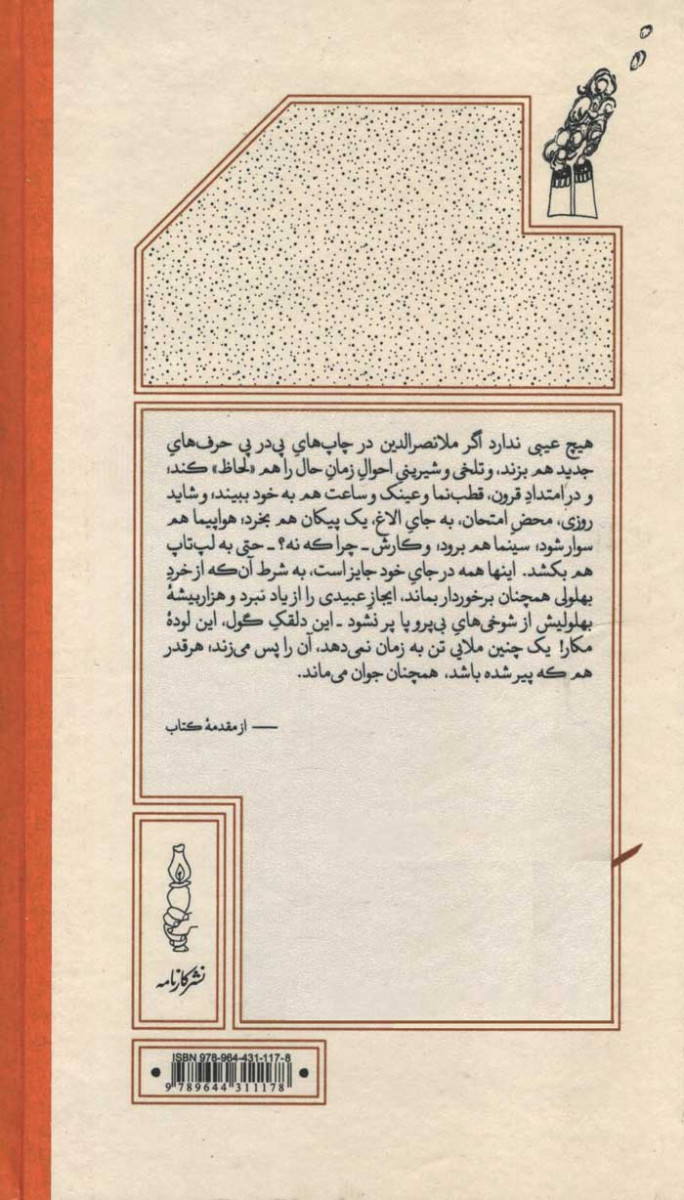 هیچ عیبی ندارد اگر ملانصرالدین در چاپ‌هایِ پی‌در پی حرف‌هایِ
جدید هم بزند، و تلخی و شیرینیِ احوالِ زمانِ حال را هم «لحاظ» کند؛
و در امتدادِ قرون، قطب‌نما و عینک و ساعت هم به خود ببیند؛ و شاید
روزی، محضِ امتحان، به جایِ الاغ، یک پیکان هم بخرد؛ هواپیما هم
سوار شود؛ سینما هم برود؛ و کارش ـ چرا که نه؟ ـ حتی به لپ‌تاپ
هم بکشد. اینها همه در جایِ خود جایز است، به شرط آن‌که از خردِ
بهلولی همچنان برخوردار بماند، ایجازِ عبیدی را از یاد نبرد و هزارپیشهٔ
بهلولیش از شوخی‌هایِ بی‌پر و پا پر نشود ـ این دلقکِ گول، این لودهٔ
مکار! یک چنین ملایی تن به زمان نمی‌دهد، آن را پس می‌زند؛ هرقدر
هم که پیر شده باشد، همچنان جوان می‌ماند.
— از مقدمهٔ کتاب
نشر کارنامه
ISBN 978-964-431-117-8
9 789644 311178